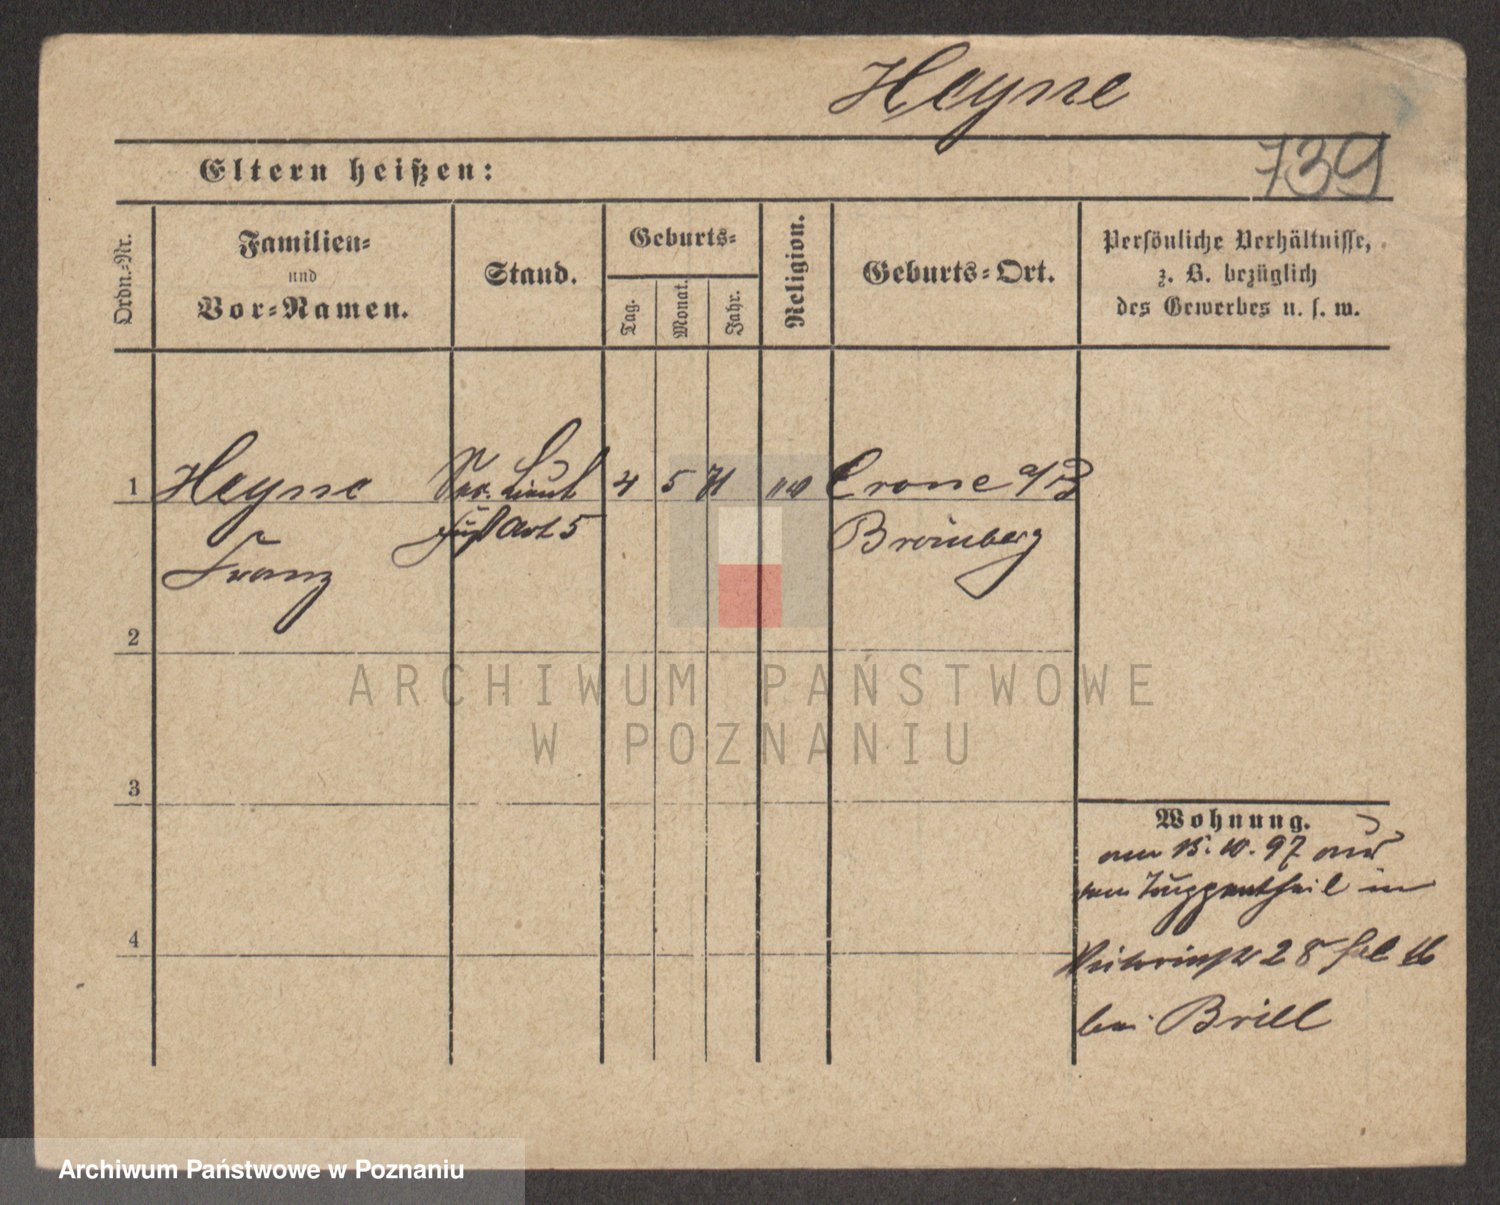 Heyne
739
Eltern heißen:
Ordn.-Nr.
Familien-
und
Vor-Namen.
Stand.
Geburts-
Tag.
Monat.
Jahr.
Religion.
Geburts-Ort.
Persönliche Verhältnisse,
z. B. bezüglich
des Gewerbes u. s. w.
1 Heyne Sec. Lieut 4 5 71 Crone a/B
Franz Fuß Art 5 Bromberg
2
ARCHIWUM PAŃSTWOWE
W POZNANIU
3
4
Wohnung.
am 15. 10. 97 aus
dem Truppentheil in
28
bei Brill
Archiwum Państwowe w Poznaniu